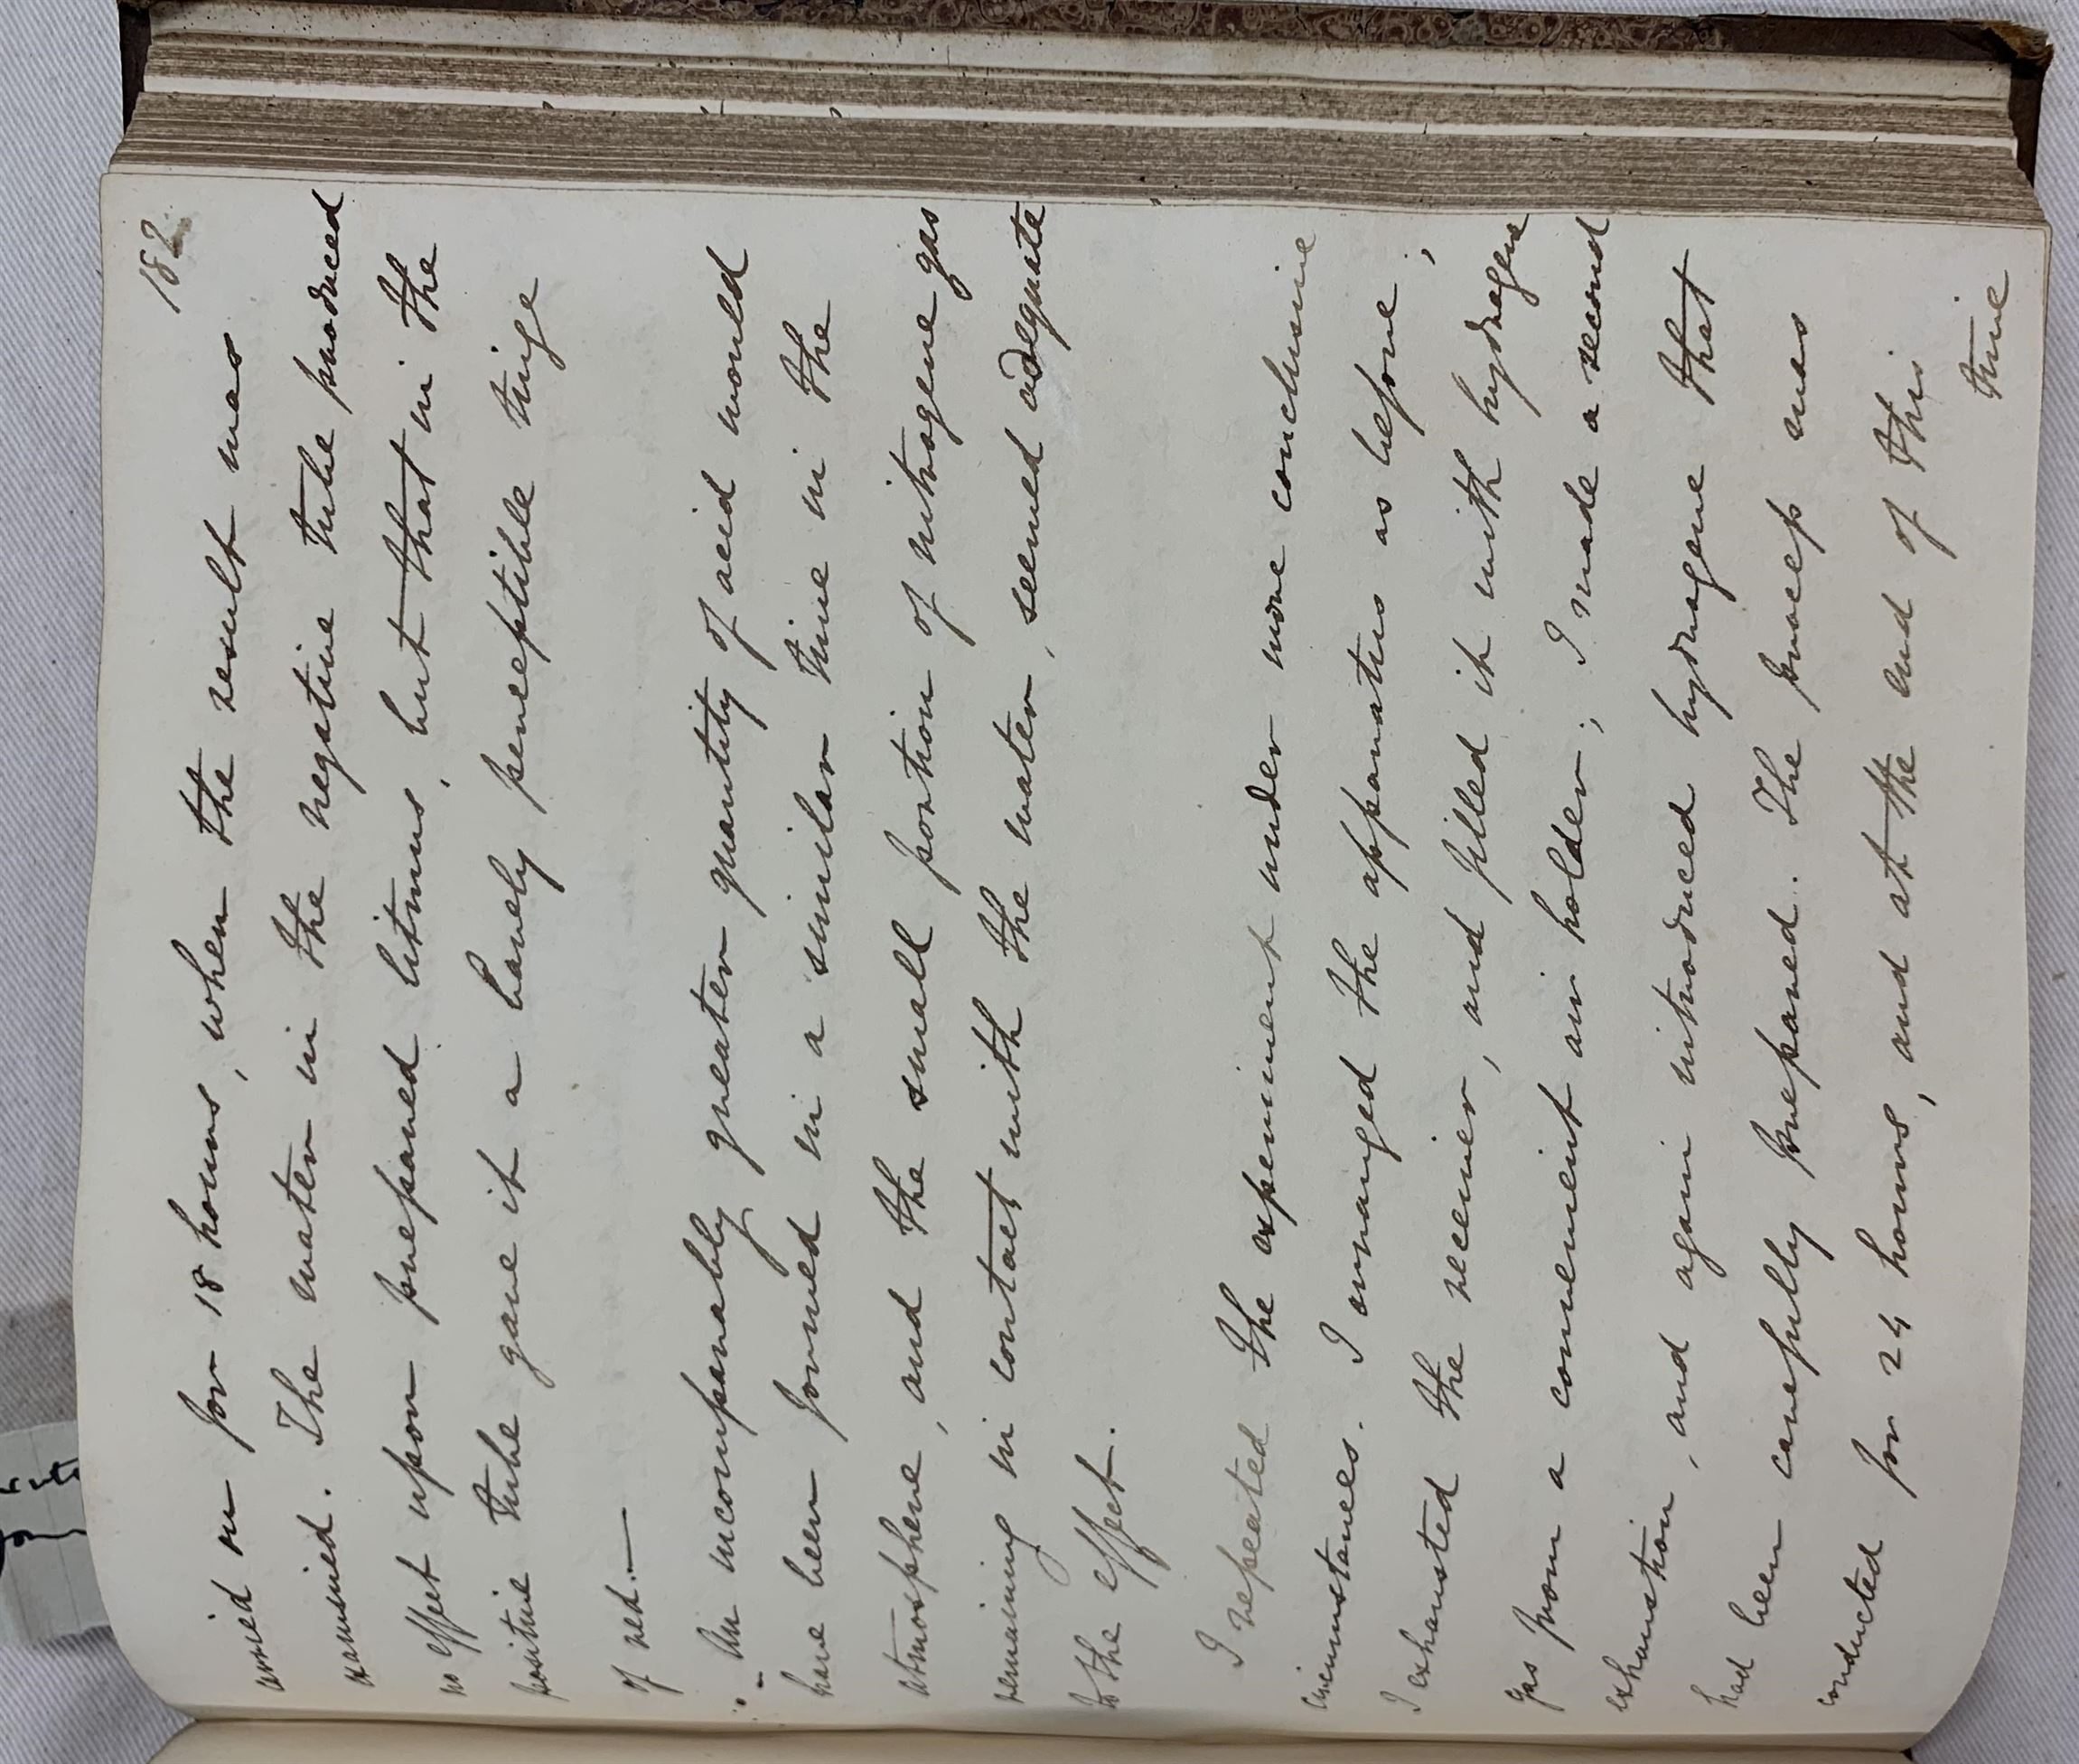 182
carried on for 18 hours, when the result was
examined. The water in the negative tube produced
no effect upon prepared litmus, but that in the
positive tube gave it a barely perceptible tinge
of red.—
An incomparably greater quantity of acid would
have been formed in a similar time in the
atmosphere, and the small portion of nitrogene gas
remaining in contact with the water, seemed adequate
to the effect.
I repeated the experiment under more conclusive
circumstances. I arranged the apparatus as before;
I exhausted the receiver, and filled it with hydrogen
gas from a convenient air holder; I made a second
exhaustion, and again introduced hydrogene that
had been carefully prepared. The process was
conducted for 24 hours, and at the end of this
time